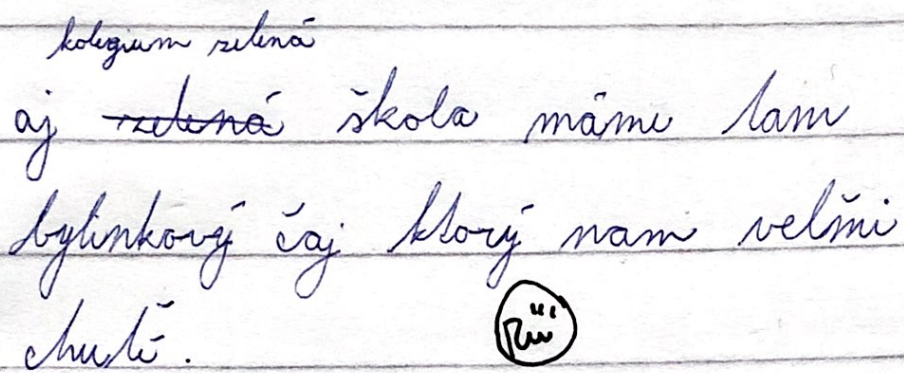 kolegium zelená
aj zelená škola máme tam
bylinkový čaj ktorý nam veľmi
chutí.